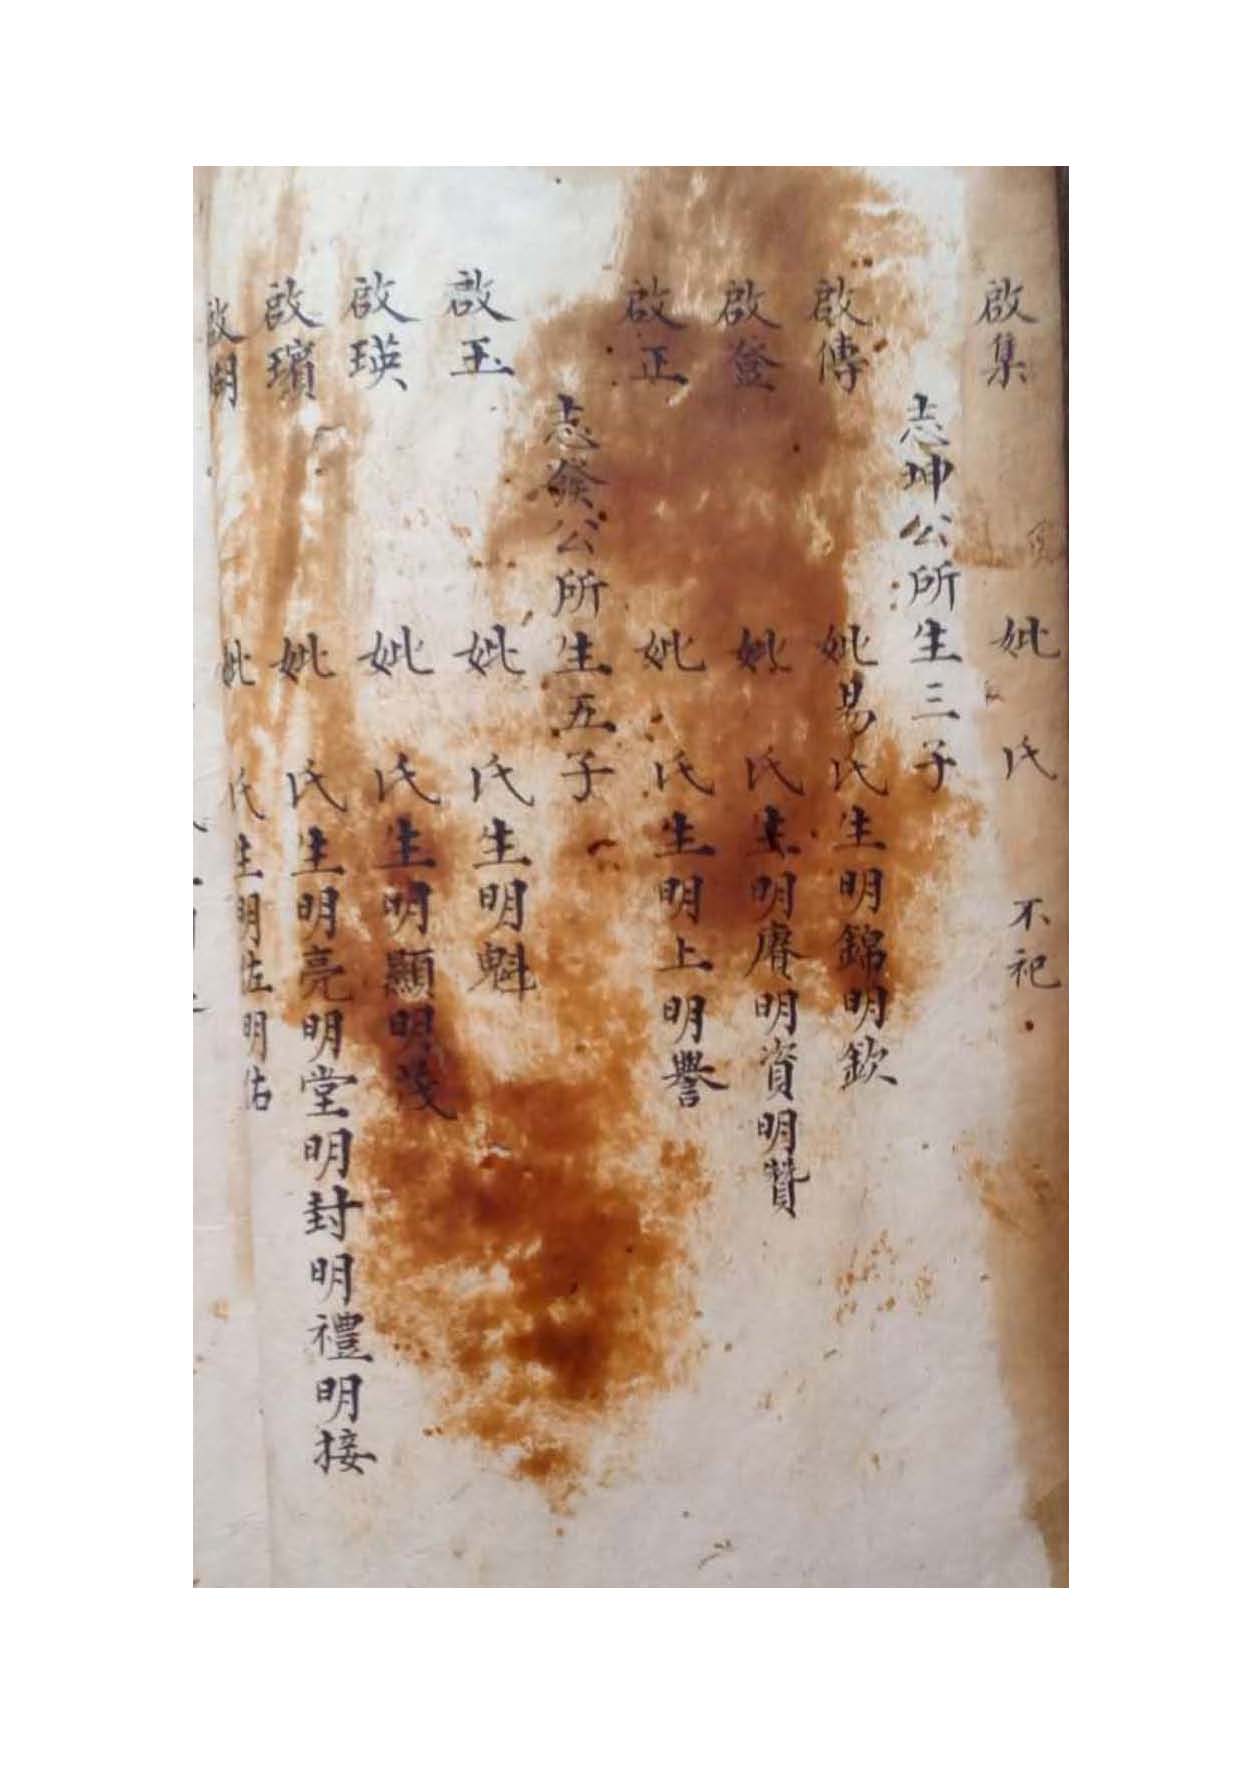 啟集 妣 氏 不祀
志坤公所生三子
啟傳 妣易氏生明錦明欽
啟登 妣 氏生明賡明資明贊
啟正 妣 氏生明上明譽
志發公所生五子
啟玉 妣 氏生明魁
啟瑛 妣 氏生明顯明
啟璸 妣 氏生明亮明堂明封明禮明接
啟 妣 氏生明佐明佑